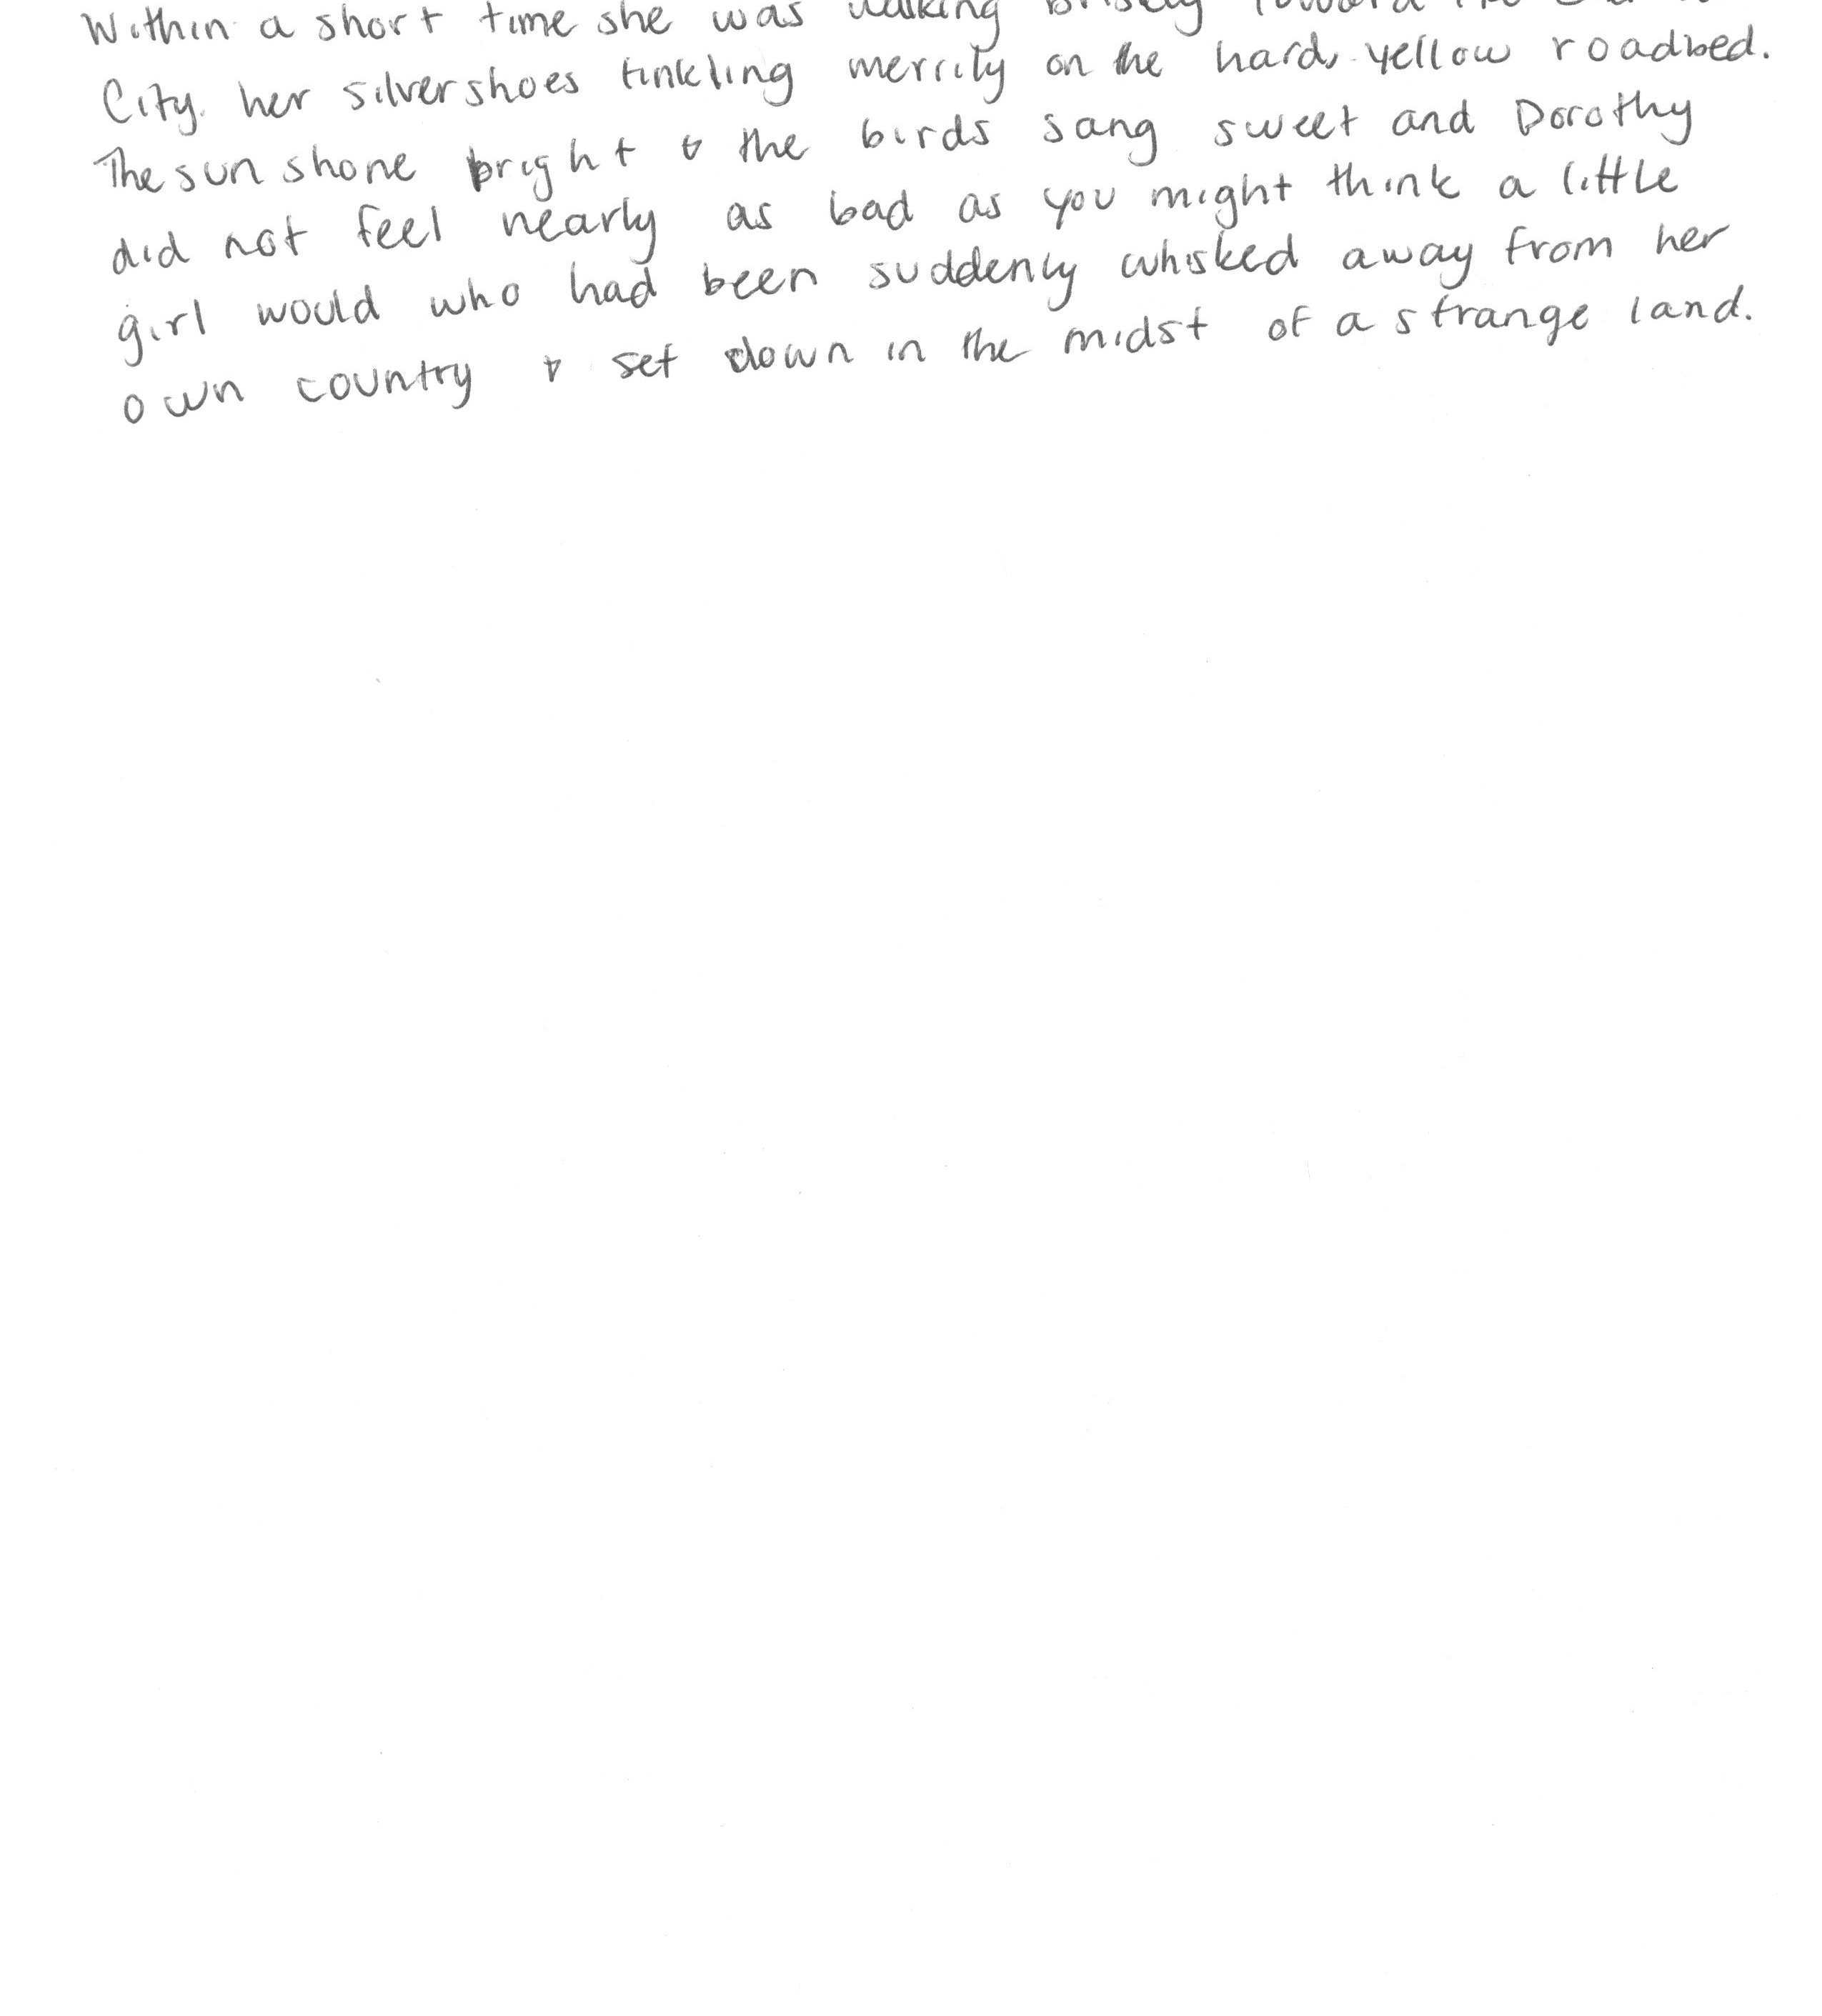 Within a short time she was walking briskly toward the
City. her silver shoes tinkling merrily on the hard, yellow roadbed.
The sun shone bright & the birds sang sweet and Dorothy
did not feel nearly as bad as you might think a little
girl would who had been suddenly whisked away from her
own country & set down in the midst of a strange land.